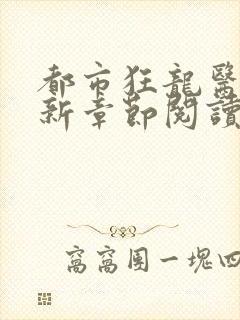 都市狂龍醫
新章節閱讀
窩窩團一塊四